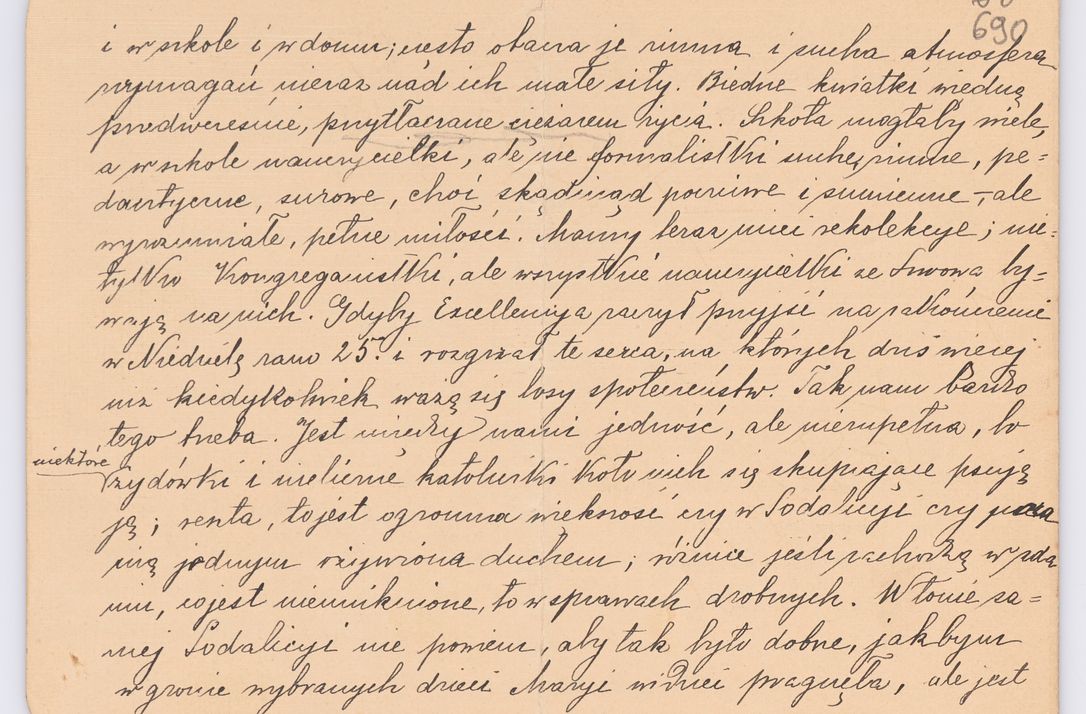 690
i w szkole i w domu; często otacza je zimna i sucha atmosfera
wymagań nieraz nad ich małe siły. Biedne kwiatki więdną
przedwcześnie, przytłaczane ciężarem życia. Szkoła mogłaby wiele,
a w szkole nauczycielki, ale nie formalistki suche, zimne, pe=
dantyczne, surowe, choć skądinąd poczciwe i sumienne -, ale
wyrozumiałe, pełne miłości. Mamy teraz mieć rekolekcye; nie=
tylko Kongreganistki, ale wszystkie nauczycielki ze Lwowa by=
wają na nich. Gdyby Excellencya raczył przyjść na zakończenie
w Niedzielę rano 25. i rozgrzał te serca, na których dziś więcej
niż kiedykolwiek ważą się losy społeczeństw. Tak nam bardzo
tego trzeba. Jest między nami jedność, ale niezupełna, bo
niektóre żydówki i nieliczne katoliczki koło nich się skupiające psują
ją; reszta, to jest ogromna większość czy w Sodalicyi czy poza
nią jednym ożywiona duchem; różnice jeśli zachodzą w zda
niu, co jest nieuniknione, to w sprawach drobnych. W łonie sa=
mej Sodalicyi nie powiem, aby tak było dobrze, jakbym
w gronie wybranych dzieci Maryi widzieć pragnęła, ale jest